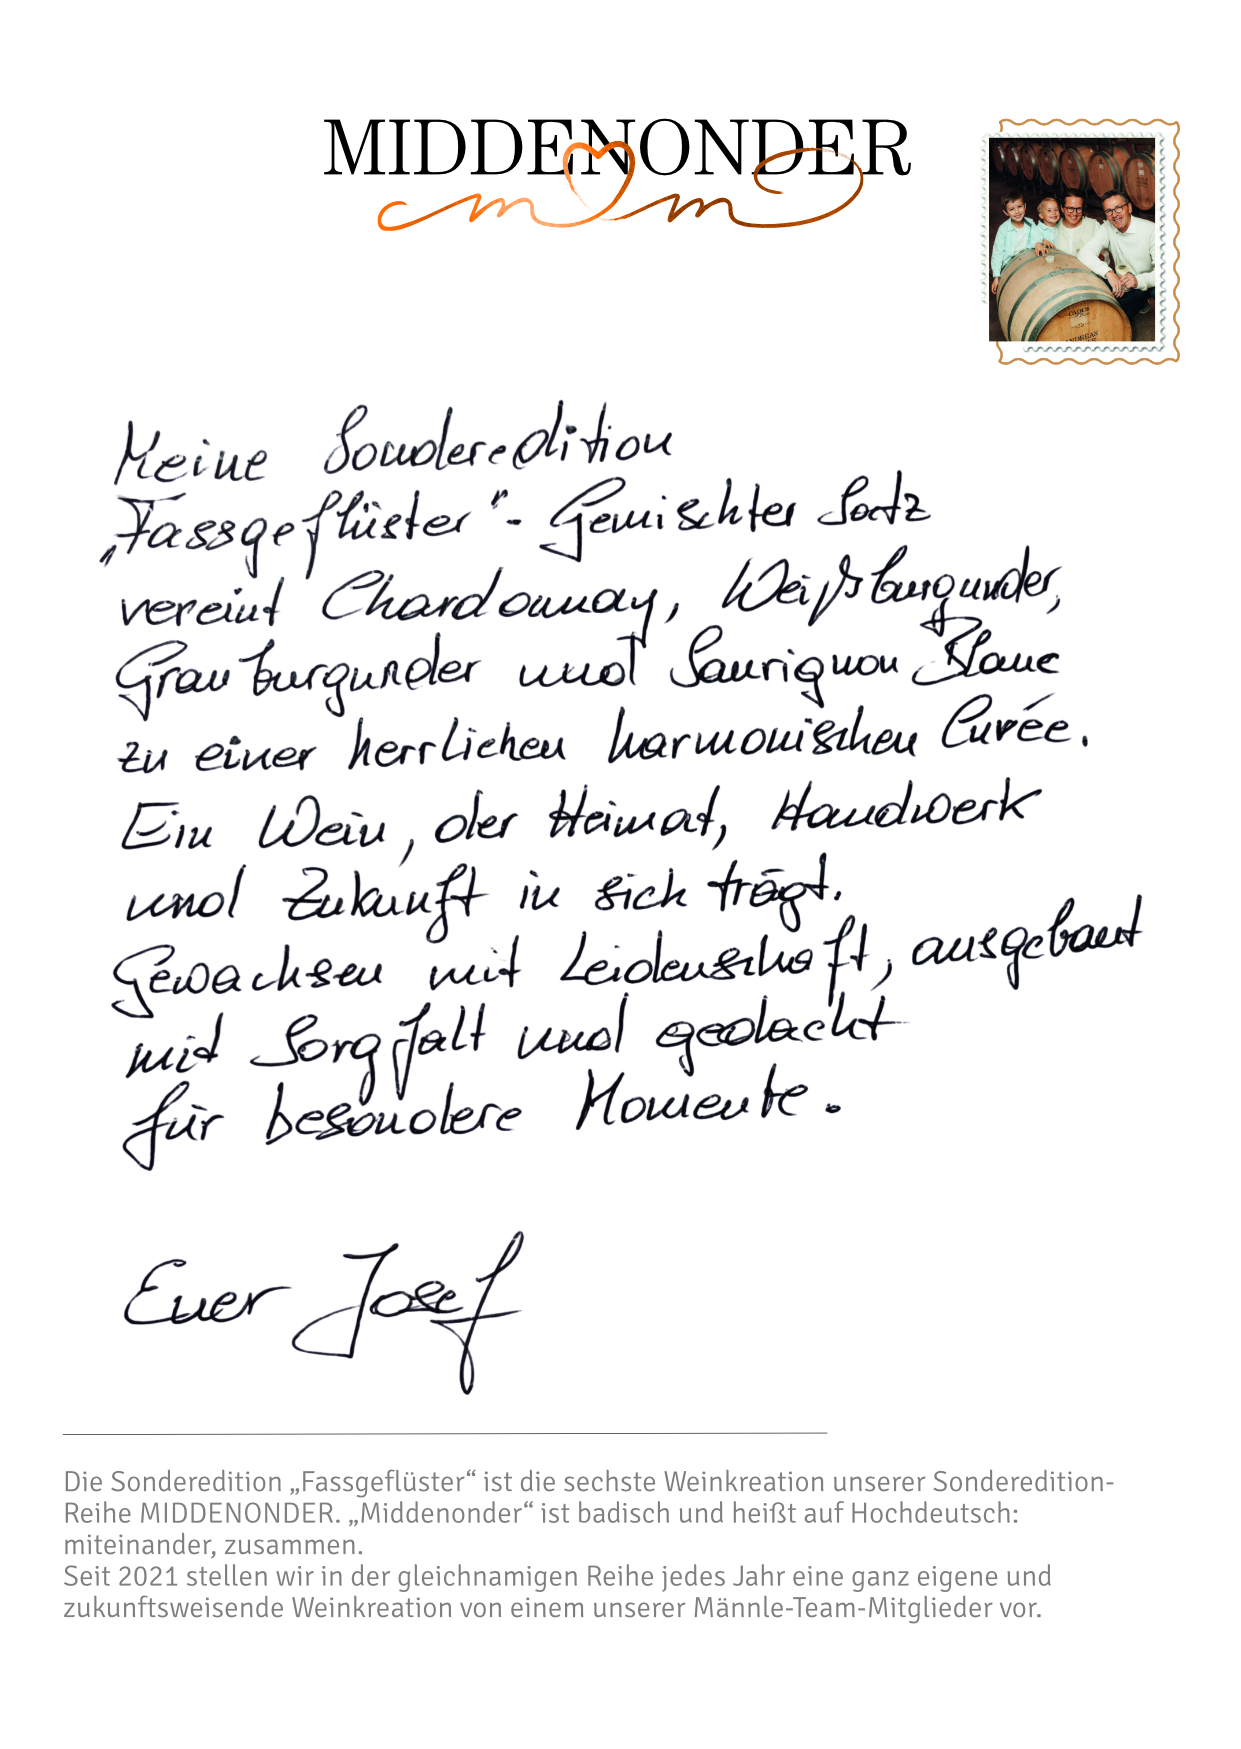 MIDDENONDER
CADUS
ANDREAS
Meine Sonderedition
„Fassgeflüster"- Gemischter Satz
vereint Chardonnay, Weißburgunder,
Grauburgunder und Sauvignon Blanc
zu einer herrlichen harmonischen Cuvée.
Ein Wein, der Heimat, Handwerk
und Zukunft in sich trägt.
Gewachsen mit Leidenschaft, ausgebaut
mit Sorgfalt und gedacht
für besondere Momente.
Euer Josef
Die Sonderedition „Fassgeflüster“ ist die sechste Weinkreation unserer Sonderedition-
Reihe MIDDENONDER. „Middenonder“ ist badisch und heißt auf Hochdeutsch:
miteinander, zusammen.
Seit 2021 stellen wir in der gleichnamigen Reihe jedes Jahr eine ganz eigene und
zukunftsweisende Weinkreation von einem unserer Männle-Team-Mitglieder vor.